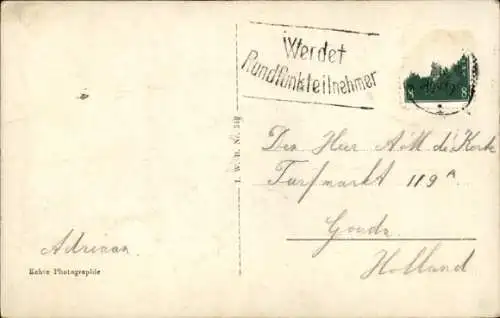 Werdet
Rundfunkteilnehmer
8 8
I. W. B. Nr.
Den Heer A M de Kock
Turfmarkt 119 A
Gouda
Holland
Adriaan.
Echte Photographie